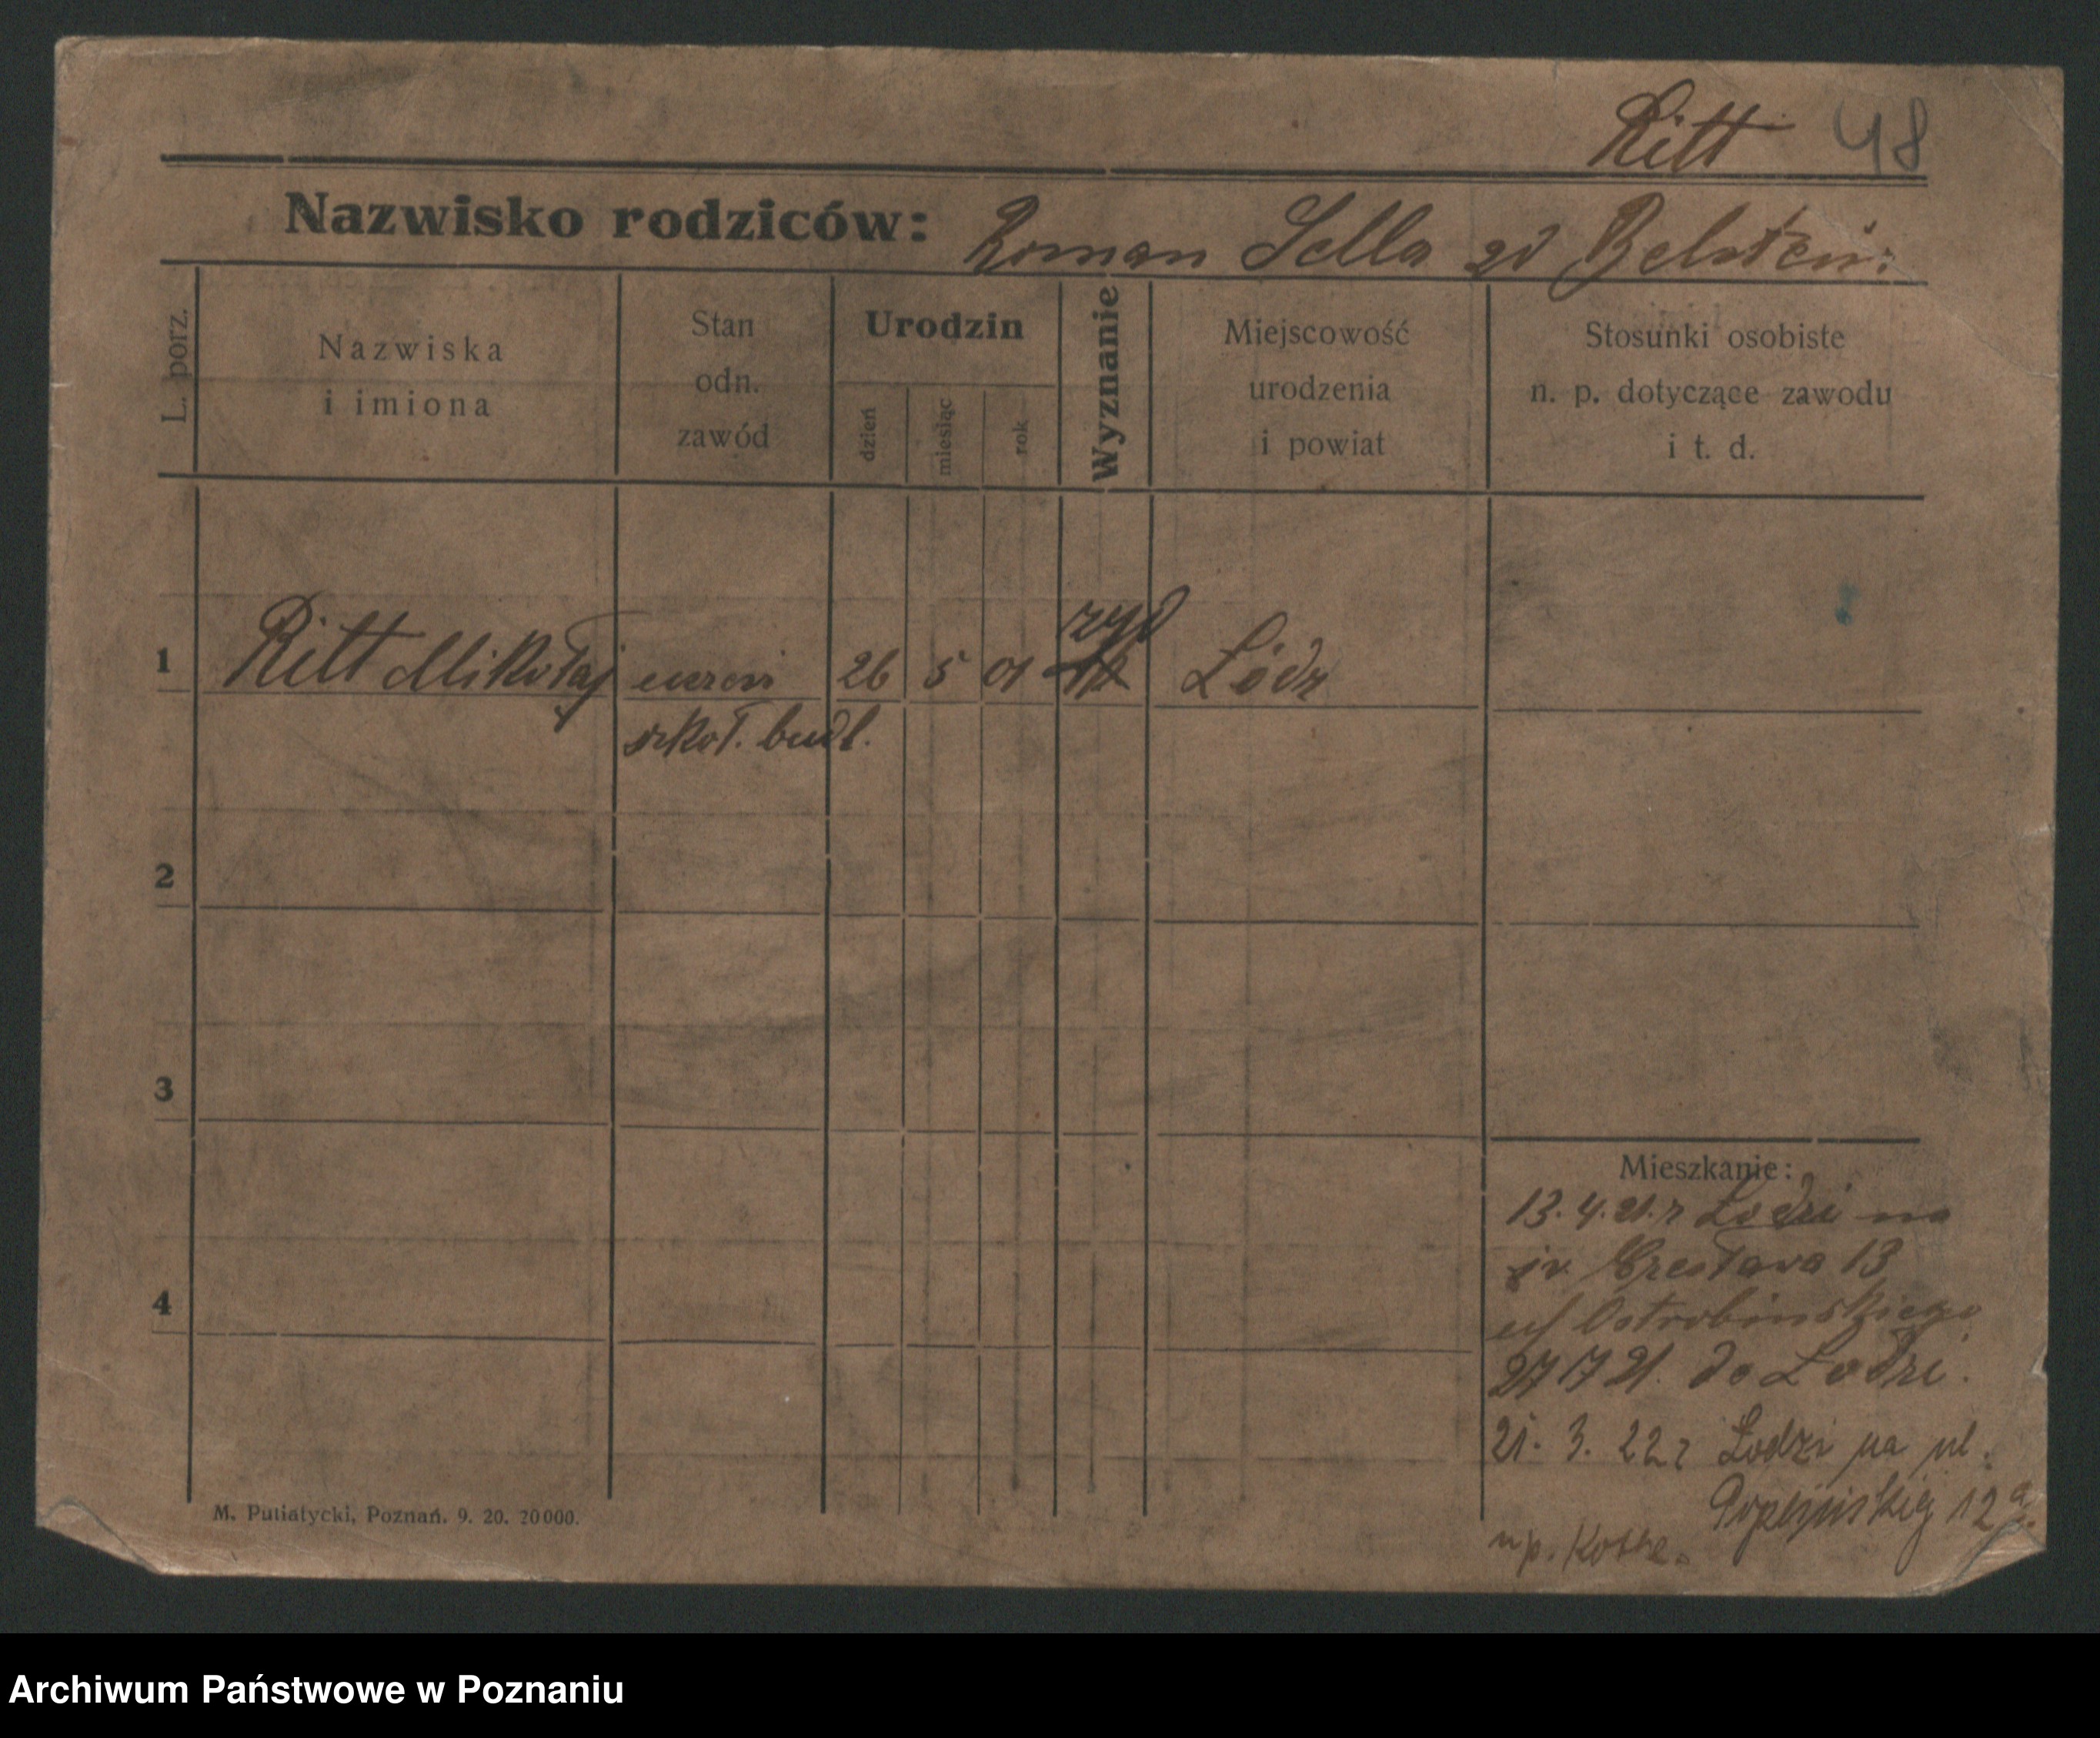 Ritt 48
Nazwisko rodziców: Roman Sella zd
L. porz.
Nazwiska
i imiona
Stan
odn.
zawód
Urodzin
dzień
miesiąc
rok
Wyznanie
Miejscowość
urodzenia
i powiat
Stosunki osobiste
n. p. dotyczące zawodu
i t. d.
żyd
1 Ritt Mikołaj uczeń 26 5 01 Łódz
szkoł. budl.
2
3
4
Mieszkanie:
13. 4. 21. z Łodzi na
św. Czesława 13
u/ Ostrobinskiego
27 7 21. do Łodzi.
21. 3. 22 z Łodzi na ul.
12a
M. Putiatycki, Poznań. 9. 20. 20000.
Archiwum Państwowe w Poznaniu